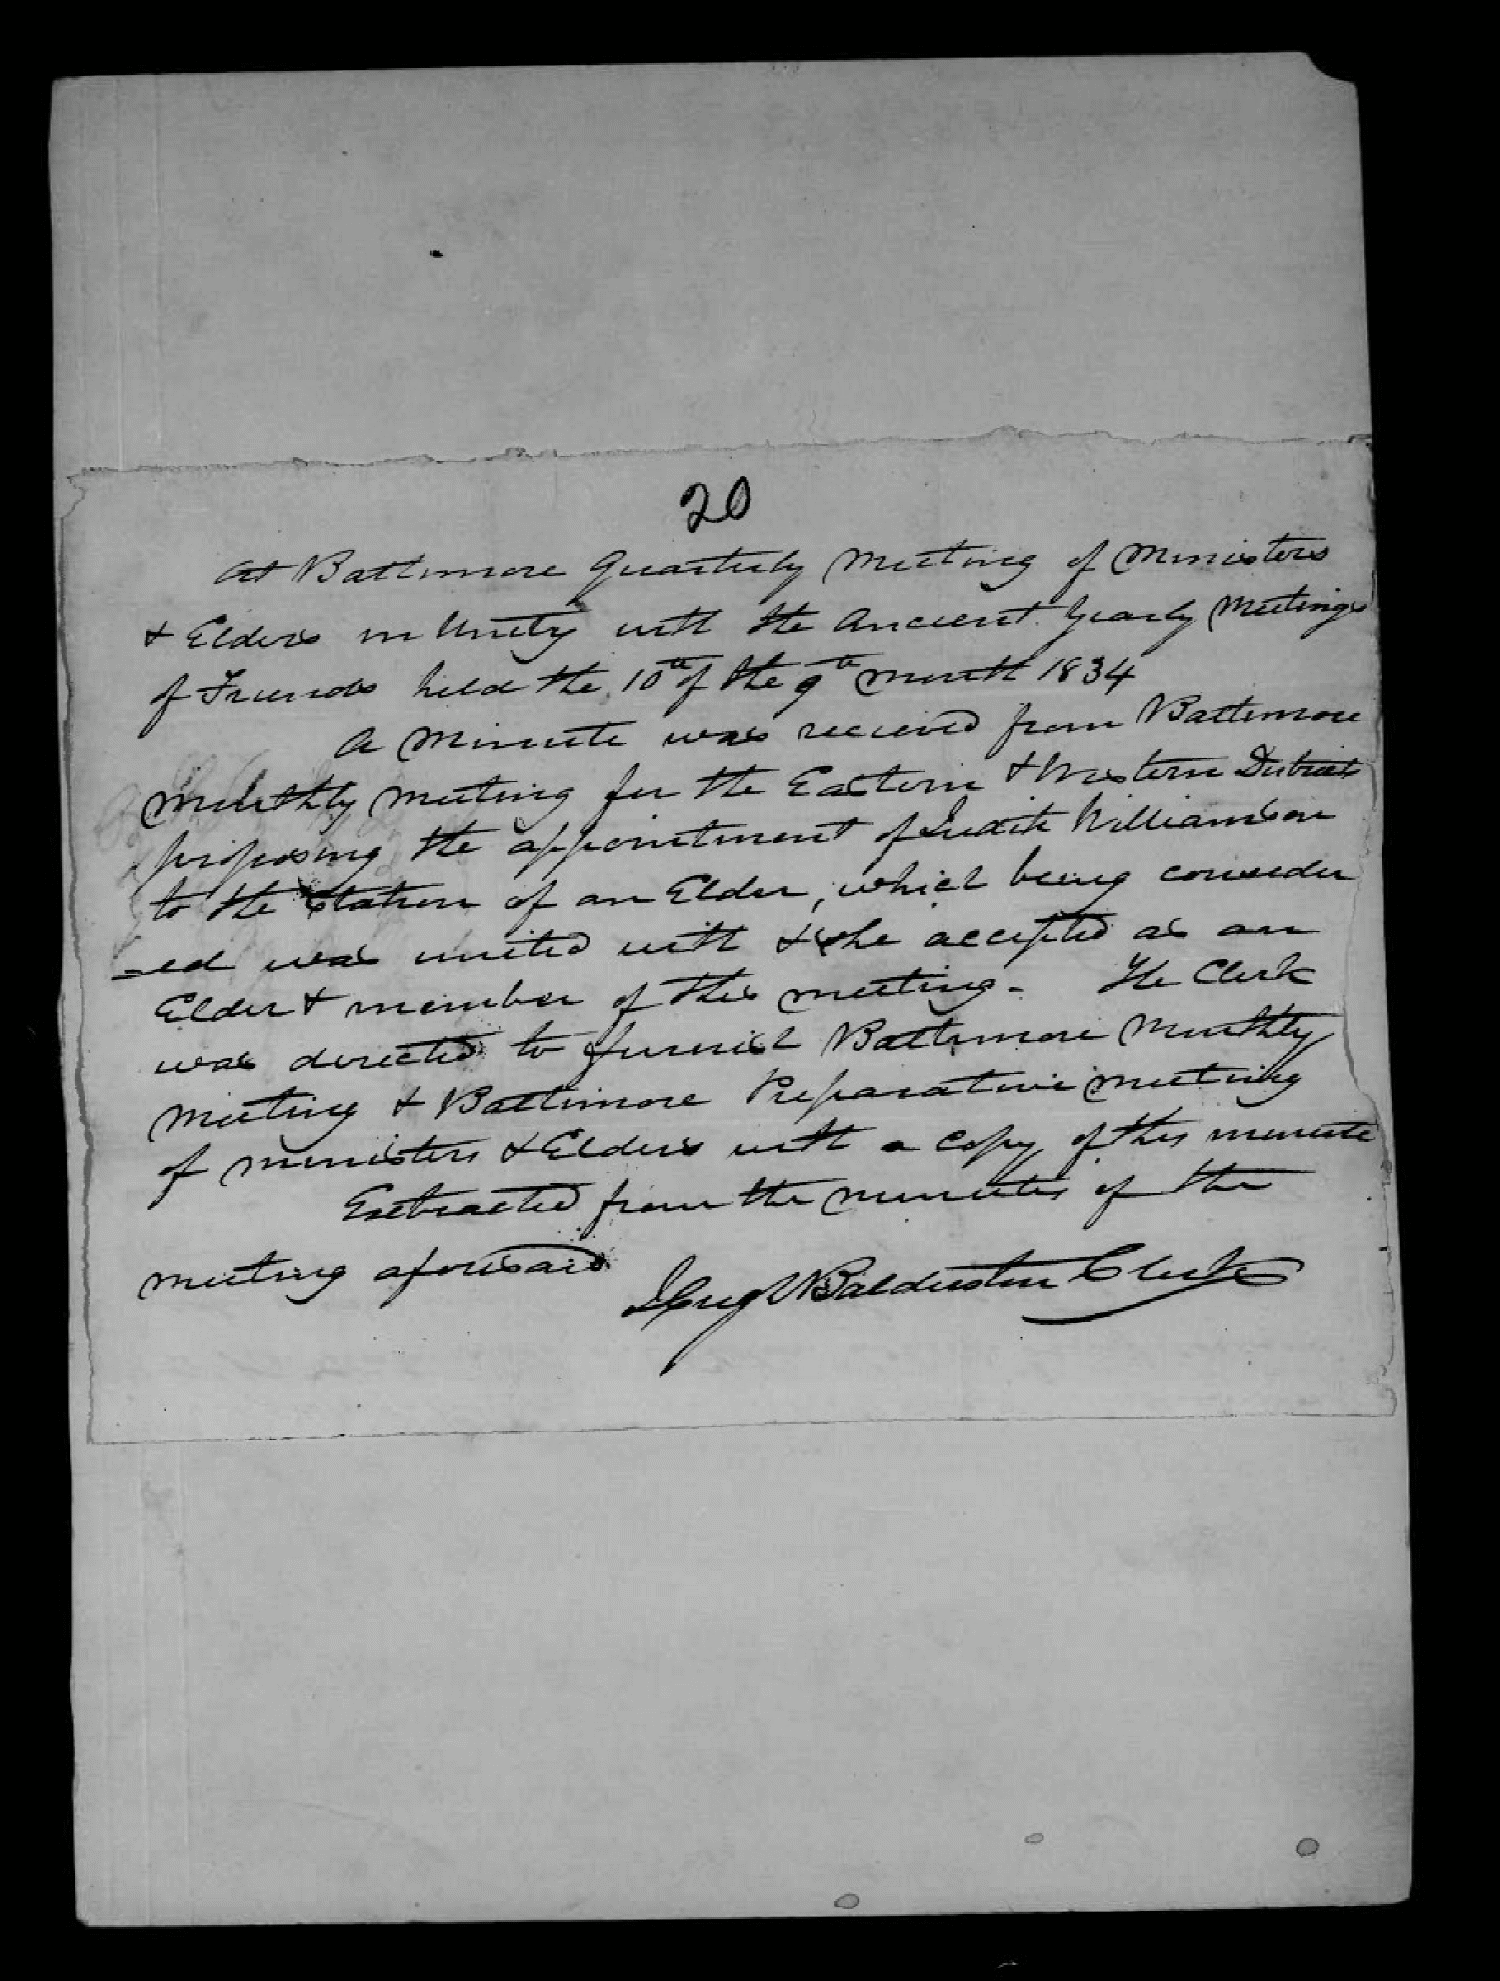 20
At Baltimore Quarterly Meeting of Ministers
& Elders in Unity with the Ancient Yearly Meetings
of Friends held the 10th of the 9th month 1834
A Minute was recieved from Baltimore
Monthly Meeting for the Eastern & Western District
proposing the appointment of Judith Williamson
to the Station of an Elder, which being consider
=ed was united with & she accepted as an
Elder & member of this meeting - The Clerk
was directed to furnish Baltimore Monthly
Meeting & Baltimore Preparative meeting
of ministers & Elders with a copy of this minute
Extracted from the minutes of the
meeting aforesaid
Hugh Balderston Clerk